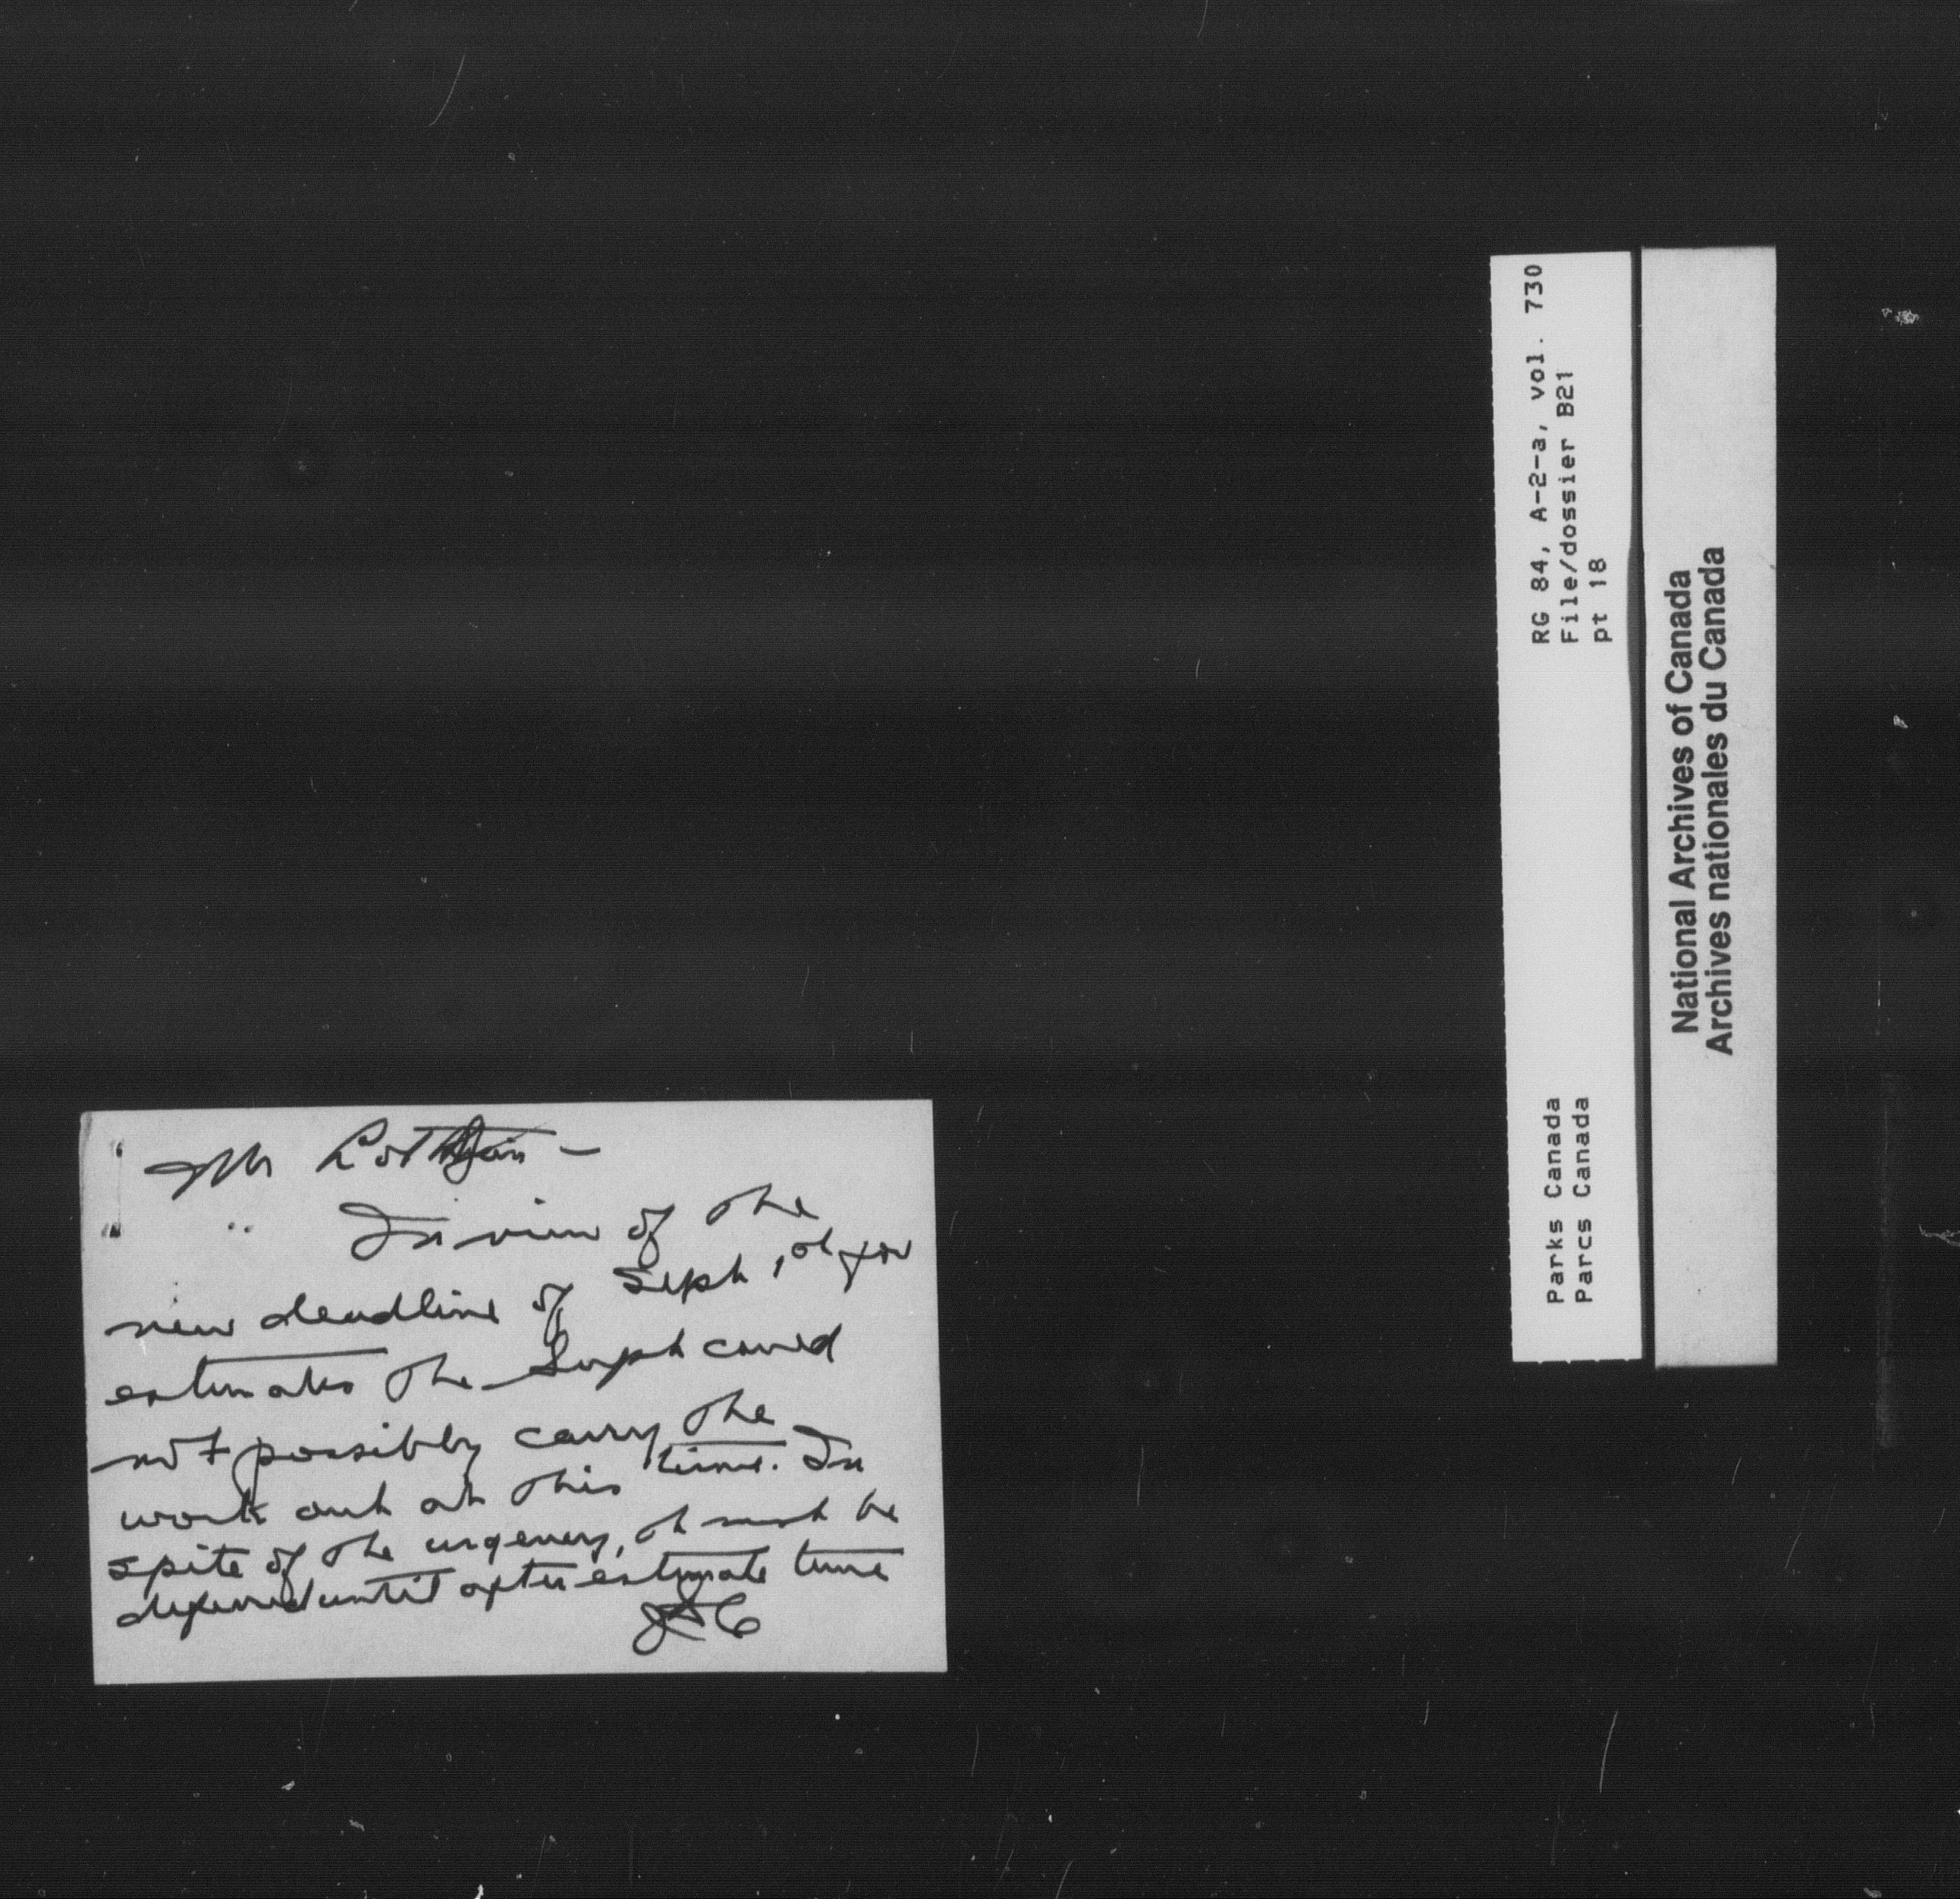 Mr Lothian -
In view of the
new deadline of Sept 1st for
estimates the Supt could
not possibly carry the
work out at this time. In
spite of the urgency, it must be
deferred until after estimate time
RG 84, A-2-a, vol. 730
File/dossier B21
pt 18
Parks Canada
Parcs Canada
National Archives of Canada
Archives nationales du Canada